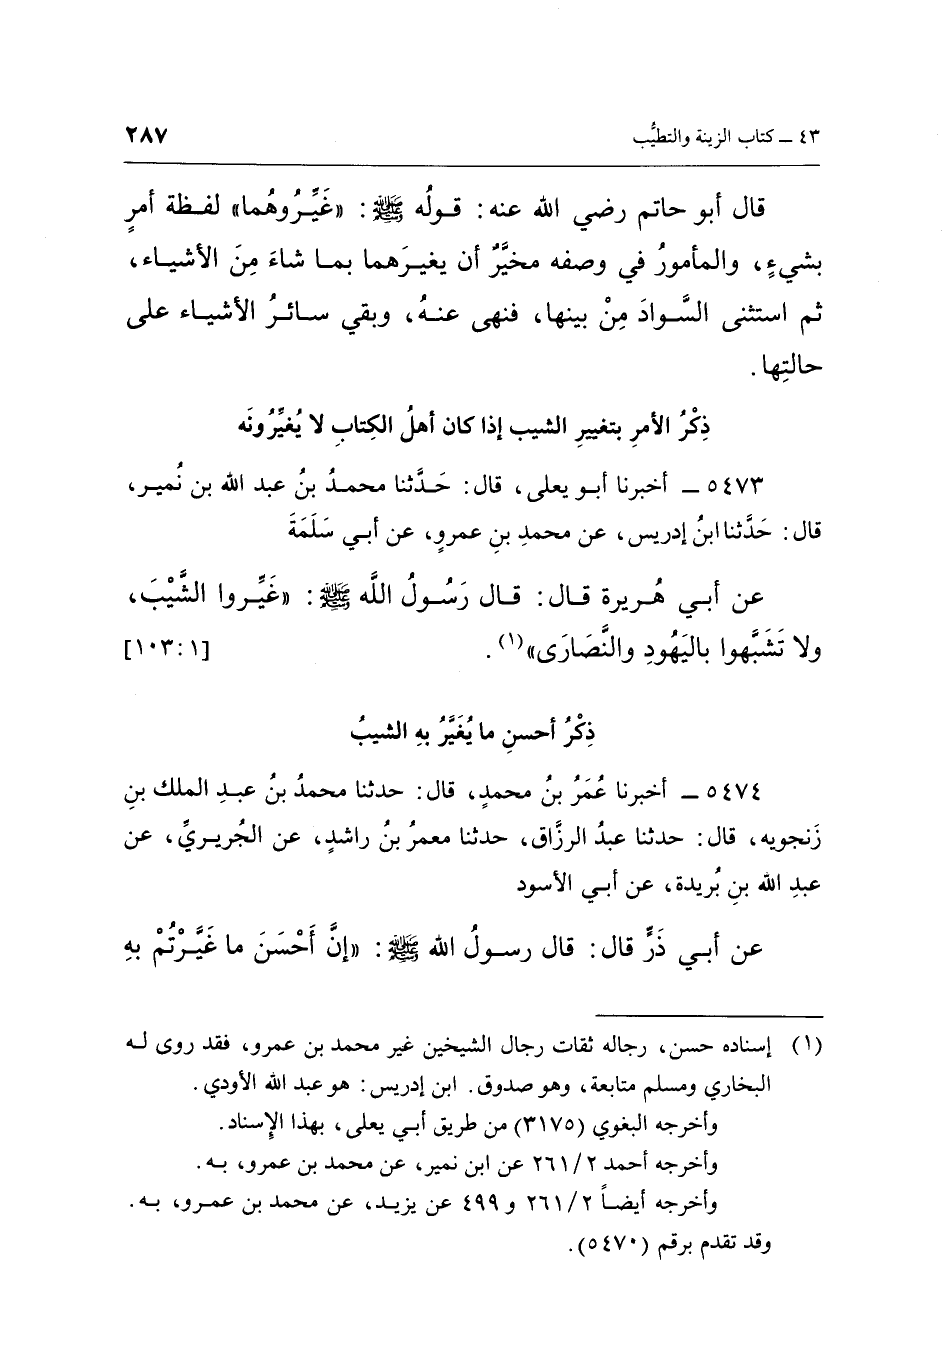 ٤٣ ـ كتاب الزينة والتطيُّب ٢٨٧
قال أبو حاتم رضي الله عنه: قـولُه ﷺ: «غَيِّرُوهُما» لفـظة أمرٍ
بشيءٍ، والمأمورُ في وصفه مخيَّرٌ أن يغيـرَهما بمـا شاءَ مِنَ الأشيـاء،
ثم استثنى السَّوادَ مِنْ بينها، فنهى عنـهُ، وبقي سـائـرُ الأشيـاء على
حالتِها.
ذِكْرُ الأمرِ بتغييرِ الشيب إذا كان أهلُ الكِتابِ لا يُغيِّرُونَه
٥٤٧٣ ـ أخبرنا أبـو يعلى، قال: حَـدَّثنا محمـدُ بنُ عبد الله بن نُميـر،
قال: حَدَّثنا ابنُ إدريس، عن محمدِ بنِ عمروٍ، عن أبـي سَلَمَةَ
عن أبـي هُـريرة قـال: قـال رَسُـولُ اللَّه ﷺ: «غَيِّـروا الشَّيْبَ،
ولا تَشَبَّهوا باليَهُودِ والنَّصَارَى»(١). [١٠٣:١]
ذِكْرُ أحسنِ ما يُغَيَّرُ بهِ الشيبُ
٥٤٧٤ ـ أخبرنا عُمَرُ بنُ محمدٍ، قال: حدثنا محمدُ بنُ عبـدِ الملك بنِ
زَنجويه، قال: حدثنا عبدُ الرزَّاق، حدثنا معمرُ بنُ راشدٍ، عن الجُريـريِّ، عن
عبدِ الله بنِ بُريدة، عن أبـي الأسود
عن أبـي ذَرٍّ قال: قال رسـولُ الله ﷺ: «إنَّ أَحْسَنَ ما غَيَّـرْتُمْ بهِ
(١) إسناده حسن، رجاله ثقات رجال الشيخين غير محمد بن عمرو، فقد روى لـه
البخاري ومسلم متابعة، وهو صدوق. ابن إدريس: هو عبد الله الأودي.
وأخرجه البغوي (٣١٧٥) من طريق أبـي يعلى، بهذا الإسناد.
وأخرجه أحمد ٢/٢٦١ عن ابن نمير، عن محمد بن عمرو، بـه.
وأخرجه أيضـاً ٢/٢٦١ و ٤٩٩ عن يزيـد، عن محمد بن عمـرو، بـه.
وقد تقدم برقم (٥٤٧٠).